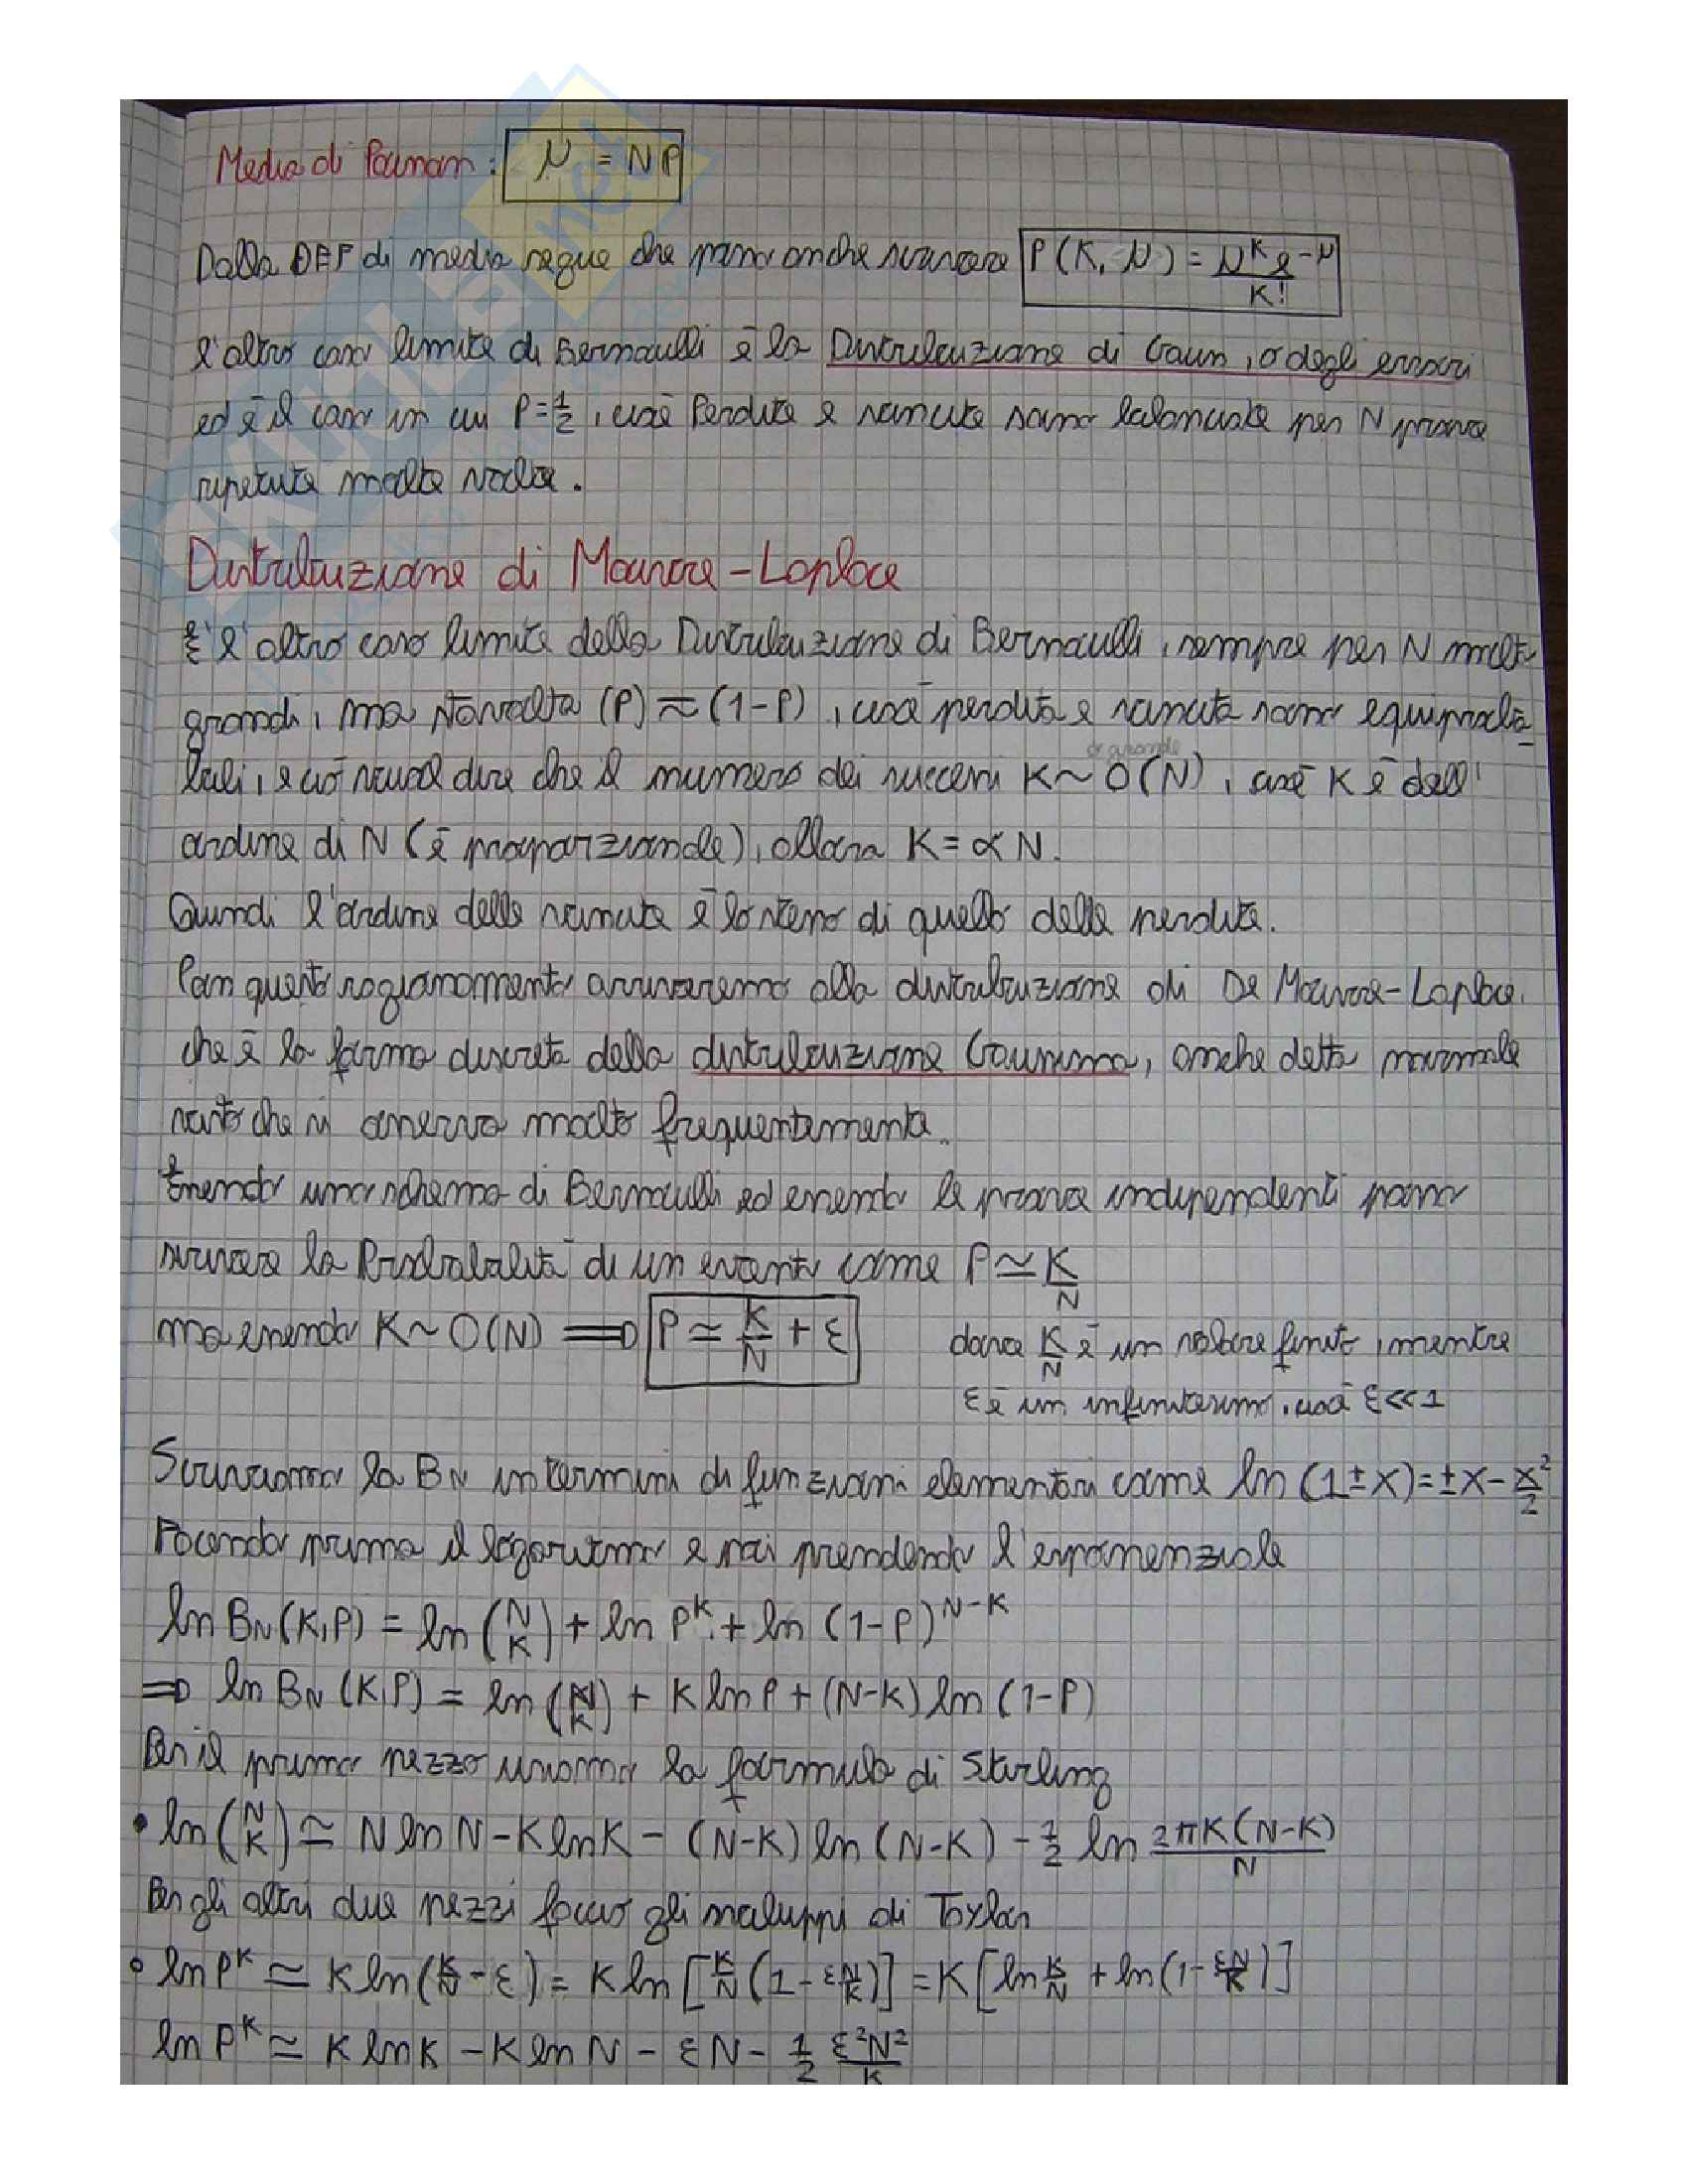 Media di Poisson: μ = NP
Dalla DEF di media segue che posso anche scrivere P(K, μ) = μ^K e^-μ / K!
l'altro caso limite di Bernoulli è la Distribuzione di Gauss, o degli errori
ed è il caso in cui P=1/2, cioè Perdite e vincite sono bilanciate per N prove
ripetute molte volte.
Distribuzione di Moivre-Laplace
È l'altro caso limite della Distribuzione di Bernoulli, sempre per N molto
grandi, ma stavolta (P) ≈ (1-P), cioè perdita e vincita sono equiproba-
bili, e ciò vuol dire che il numero dei successi K ~ O(N), cioè K è dell'
o grande
ordine di N (è proporzionale), allora K = αN.
Quindi l'ordine delle vincite è lo stesso di quello delle perdite.
Con questo ragionamento arriveremo alla distribuzione di De Moivre-Laplace
che è la forma discreta della distribuzione Gaussiana, anche detta normale
visto che si osserva molto frequentemente.
Essendo uno schema di Bernoulli ed essendo le prove indipendenti posso
scrivere la Probabilità di un evento come P ≃ K/N
ma essendo K ~ O(N) ⟹ P ≃ K/N + ε dove K/N è un valore finito, mentre
ε è un infinitesimo, cioè ε<<1
Scriviamo la BN in termini di funzioni elementari come ln(1±x) = ±x - x²/2
Facendo prima il logaritmo e poi prendendo l'esponenziale
ln BN(K,P) = ln (N K) + ln P^K + ln (1-P)^N-K
⟹ ln BN(K,P) = ln (N K) + K ln P + (N-K) ln (1-P)
Per il primo pezzo usiamo la formula di Stirling
• ln (N K) ≃ N ln N - K ln K - (N-K) ln (N-K) - 1/2 ln 2πK(N-K)/N
Per gli altri due pezzi faccio gli sviluppi di Taylor
• ln P^K ≃ K ln (K/N - ε) = K ln [K/N (1 - ε N/K)] = K [ln K/N + ln (1 - εN/K)]
ln P^K ≃ K ln K - K ln N - εN - 1/2 ε²N²/K